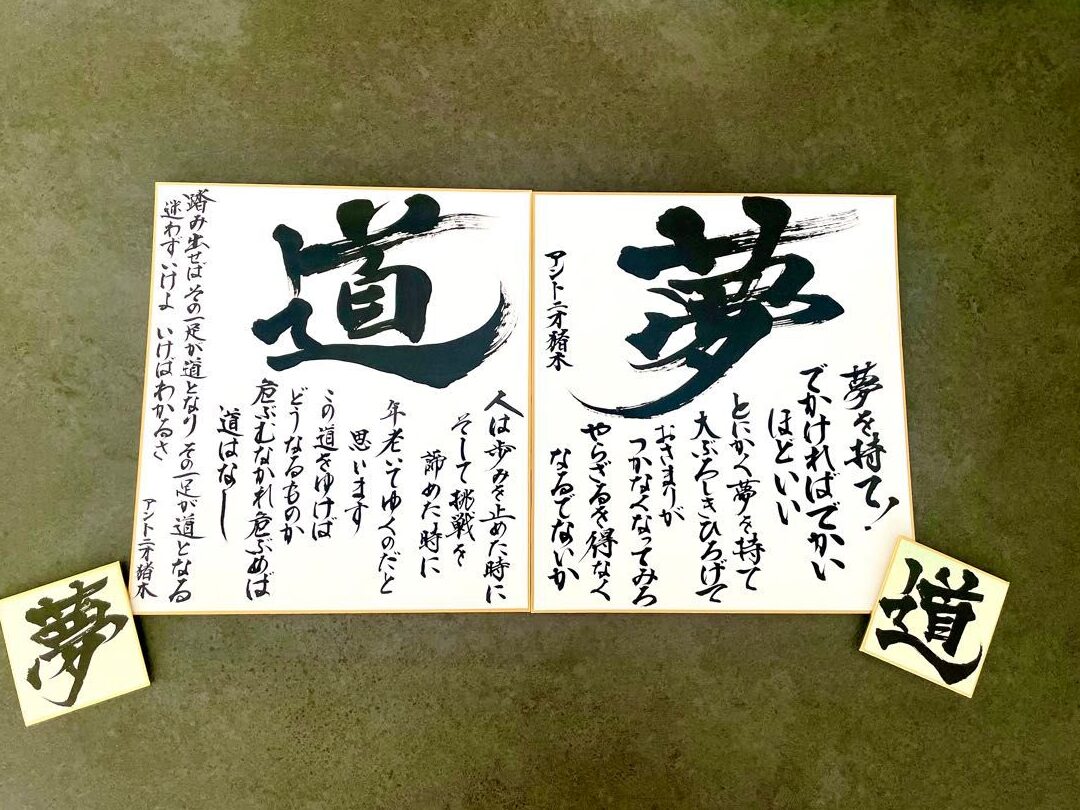 夢
夢を持て!
でかければでかい
ほどいい
とにかく夢を持て
大ぶろしきひろげて
おさまりが
つかなくなってみろ
やらざるを得なく
なるでないか
アントニオ猪木
道
人は歩みを止めた時に
そして挑戦を
諦めた時に
年老いてゆくのだと
思います
この道をゆけば
どうなるものか
危ぶむなかれ危ぶめば
道はなし
踏み出せばその一足が道となりその一足が道となる
迷わずいけよ いけばわかるさ
アントニオ猪木
道
夢